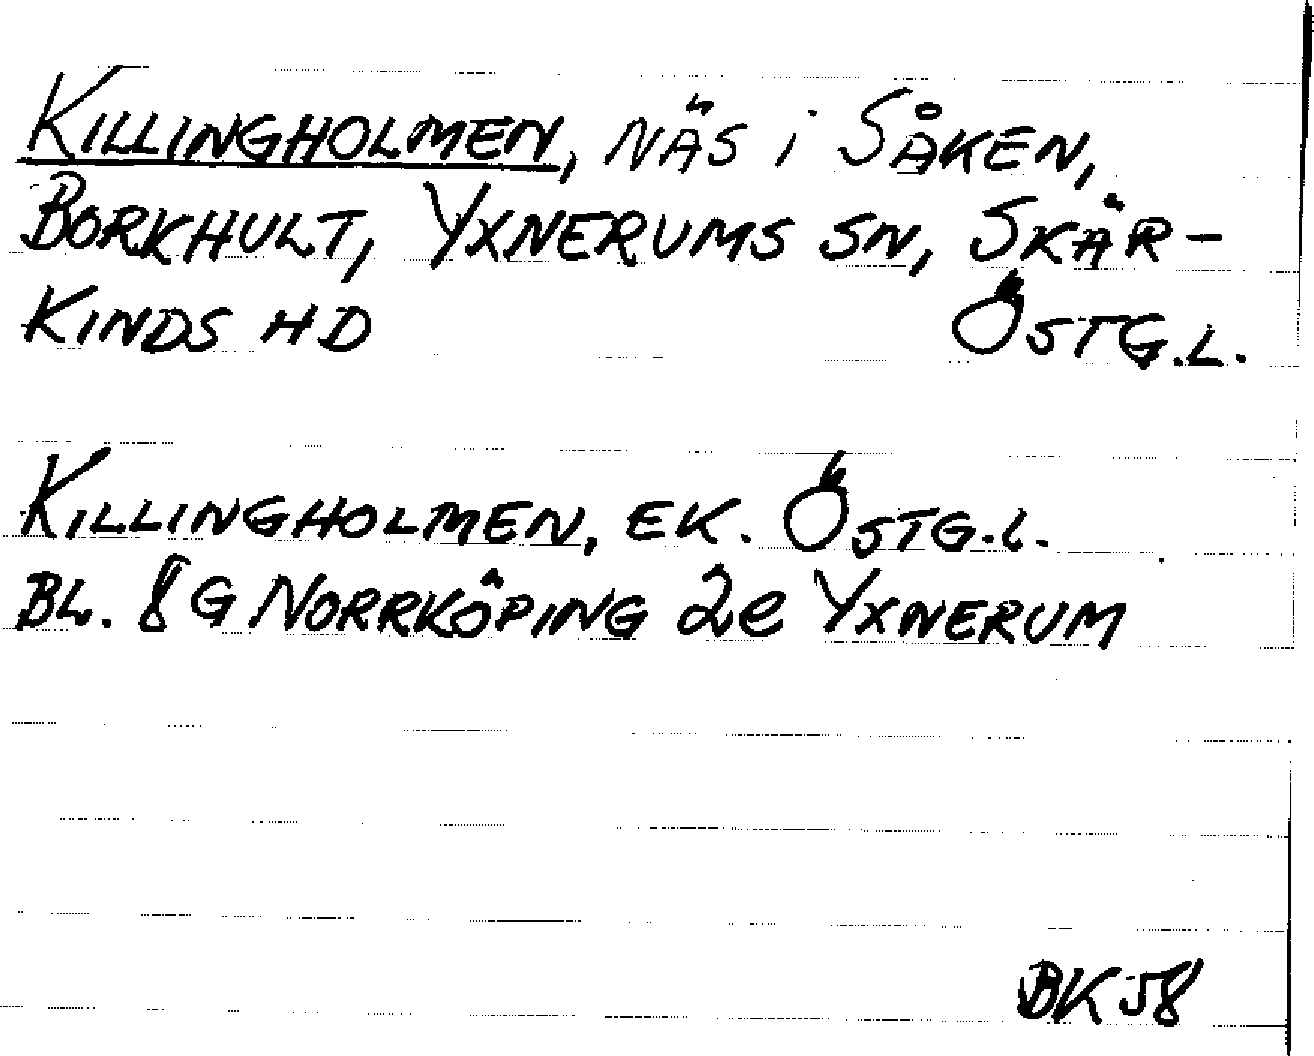 KILLINGHOLMEN, NÄS i SÅKEN,
BORKHULT, YXNERUMS SN, SKÄR-
KINDS HD ÖSTG.L.
KILLINGHOLMEN, EK. ÖSTG.L.
BL. 8G NORRKÖPING 2e YXNERUM
BK58